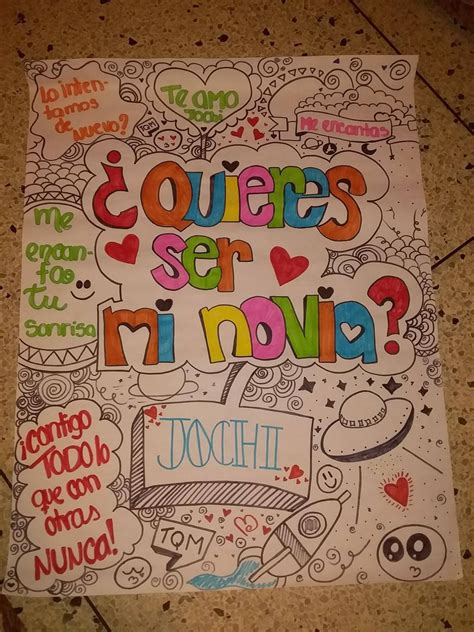 Lo inten-
tamos
de
nuevo?
TE AMO
JOCHI
TQM
Me encantas
¿QUIERES
SER
MI NOVIA?
Me
encan-
ta
tu
sonrisa
¡CONTIGO
TODO lo
que con
otras
NUNCA!
JOCHI
TQM